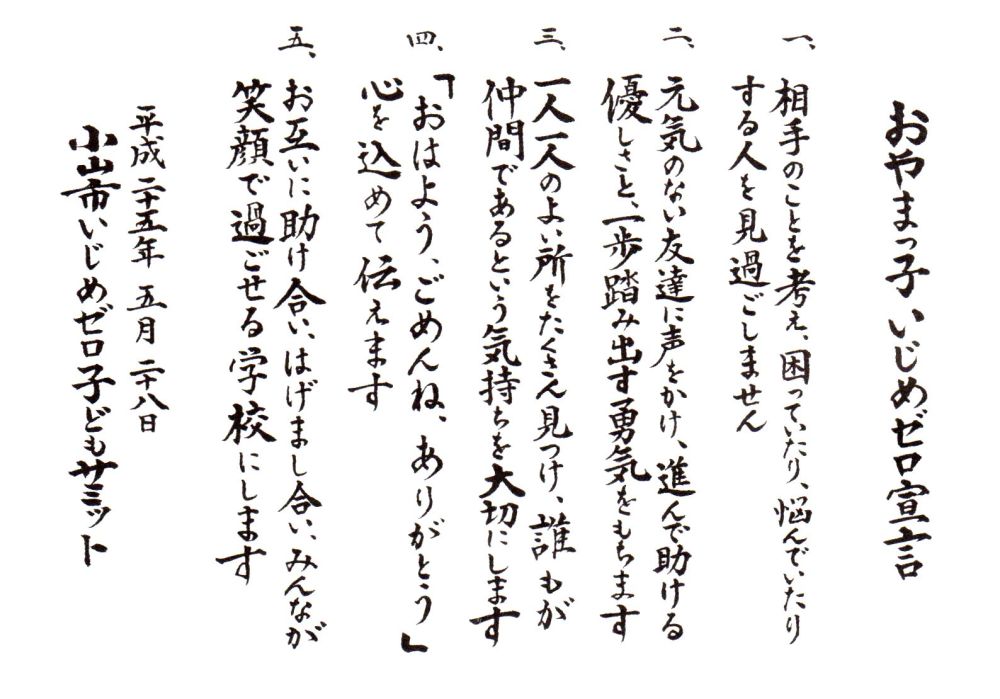 おやまっ子いじめゼロ宣言
一、相手のことを考え、困っていたり、悩んでいたり
する人を見過ごしません
二、元気のない友達に声をかけ、進んで助ける
優しさと、一歩踏み出す勇気をもちます
三、一人一人のよい所をたくさん見つけ、誰もが
仲間であるという気持ちを大切にします
四、「おはよう、ごめんね、ありがとう」
心を込めて伝えます
五、お互いに助け合い、はげまし合い、みんなが
笑顔で過ごせる学校にします
平成二十五年 五月 二十八日
小山市いじめゼロ子どもサミット